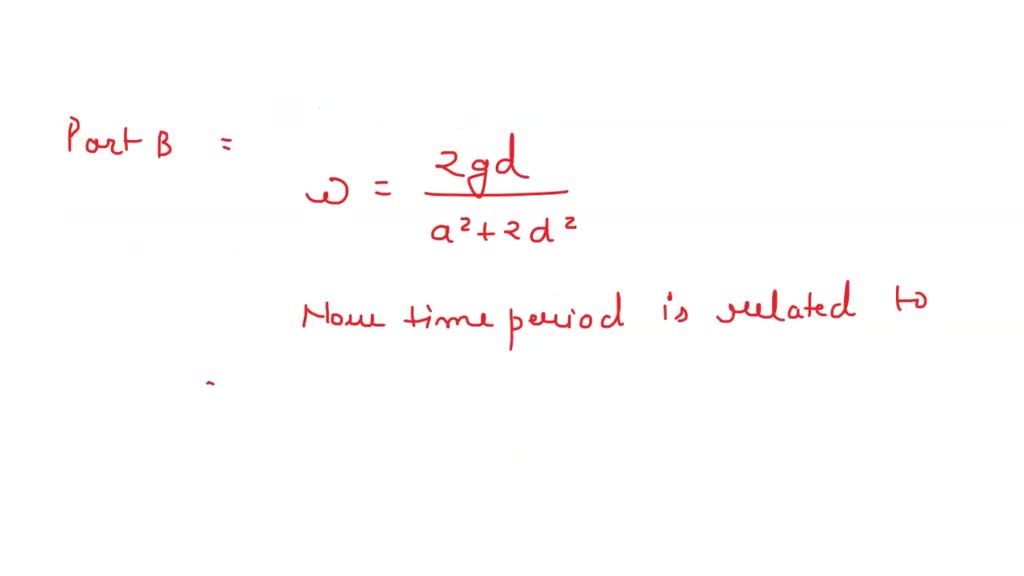 Part B =
ω = 2gd / a²+2d²
Now time period is related to